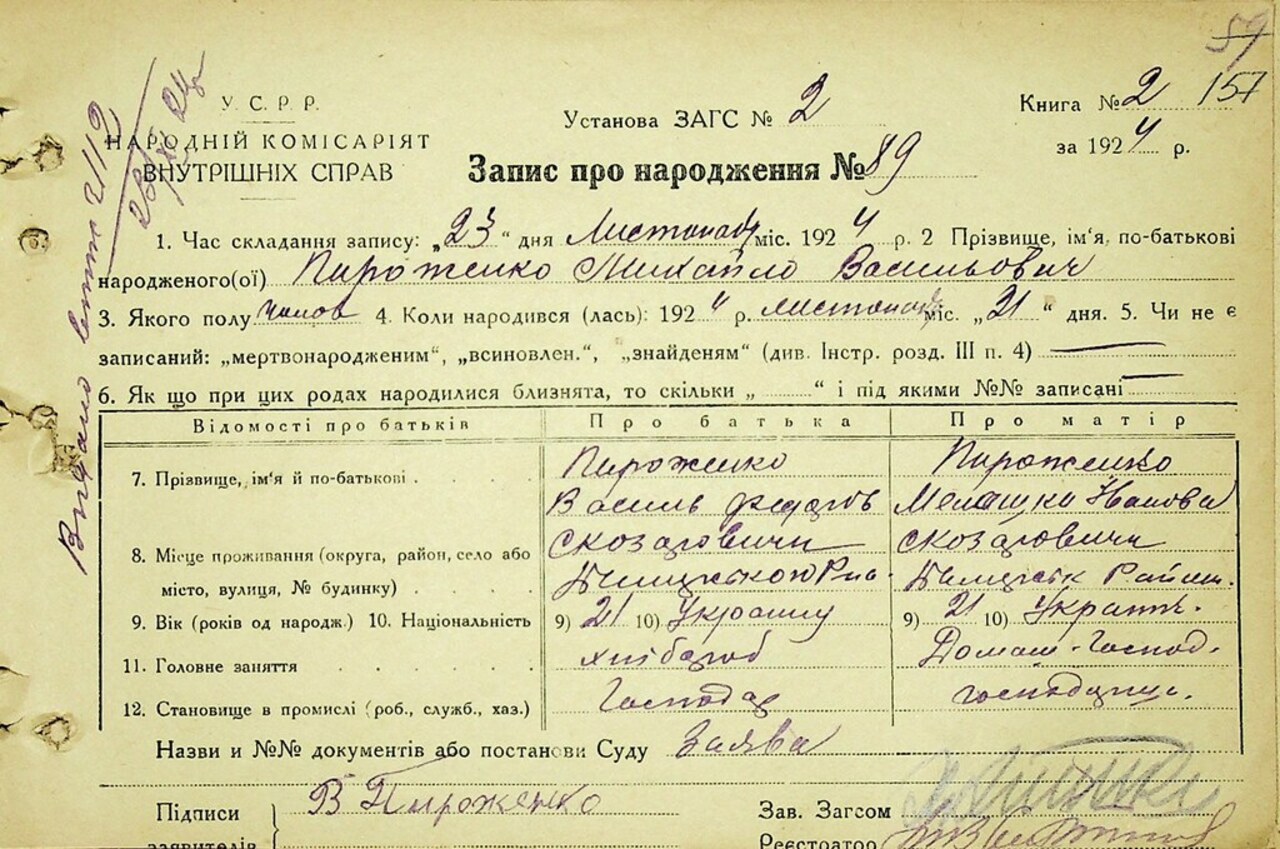 59
У. С. Р. Р.
НАРОДНІЙ КОМІСАРІЯТ
ВНУТРІШНІХ СПРАВ
Установа ЗАГС № 2
Книга № 2 157
за 1924 р.
Запис про народження № 89
Видано 2112
1. Час складання запису: „23“ дня Листопаду міс. 1924 р. 2 Прізвище, ім'я, по-батькові
народженого(ої) Пироженко Михайло Васильович
3. Якого полу чолов 4. Коли народився (лась): 1924 р. листопаду міс. „21“ дня. 5. Чи не є
записаний: „мертвонародженим“, „всиновлен.“, „знайденям“ (див. Інстр. розд. III п. 4)
6. Як що при цих родах народилися близнята, то скільки „ “ і під якими №№ записані
Відомості про батьків Про батька Про матір
7. Прізвище, ім'я й по-батькові Пироженко Пироженко
Василь Федоров Мелашка Іванова
8. Місце проживання (округа, район, село або Скозаровичи Скозаровичи
місто, вулиця, № будинку)
9. Вік (років од народж.) 10. Національність 9) 21 10) Украинц 9) 21 10) Украінк.
11. Головне заняття хлібороб Домаш. Господ.
12. Становище в промислі (роб., служб., хаз.) Господар господиниця.
Назви и №№ документів або постанови Суду Заява
Підписи В Пироженко
Зав. Загсом
заявителів
Реєстратор